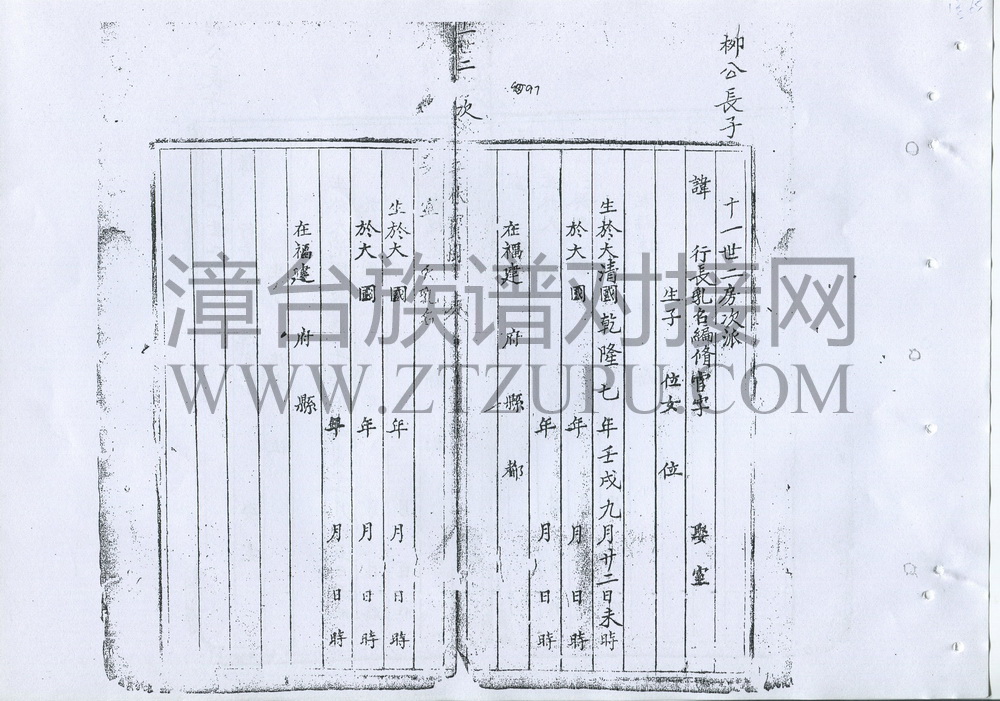 柳公長子
十一世二房次派
諱 行長乳名編脩官字 娶室
生子 位女 位
生於大清國乾隆七年壬戌九月廿二日未時
於大 國 年 月 日 時
年 月 日 時
在福建 府 縣 都
二 次
8097
室 乳名
生於大 國 年 月 日 時
於大 國 年 月 日 時
年 月 日 時
在福建 府 縣
漳台族谱对接网
WWW.ZTZUPU.COM